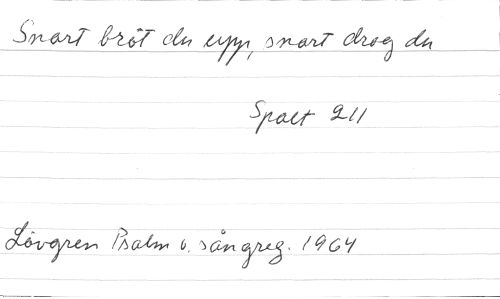 Snart bröt du upp, snart drog du
Spalt 211
Lövgren Psalm o. sångreg. 1964